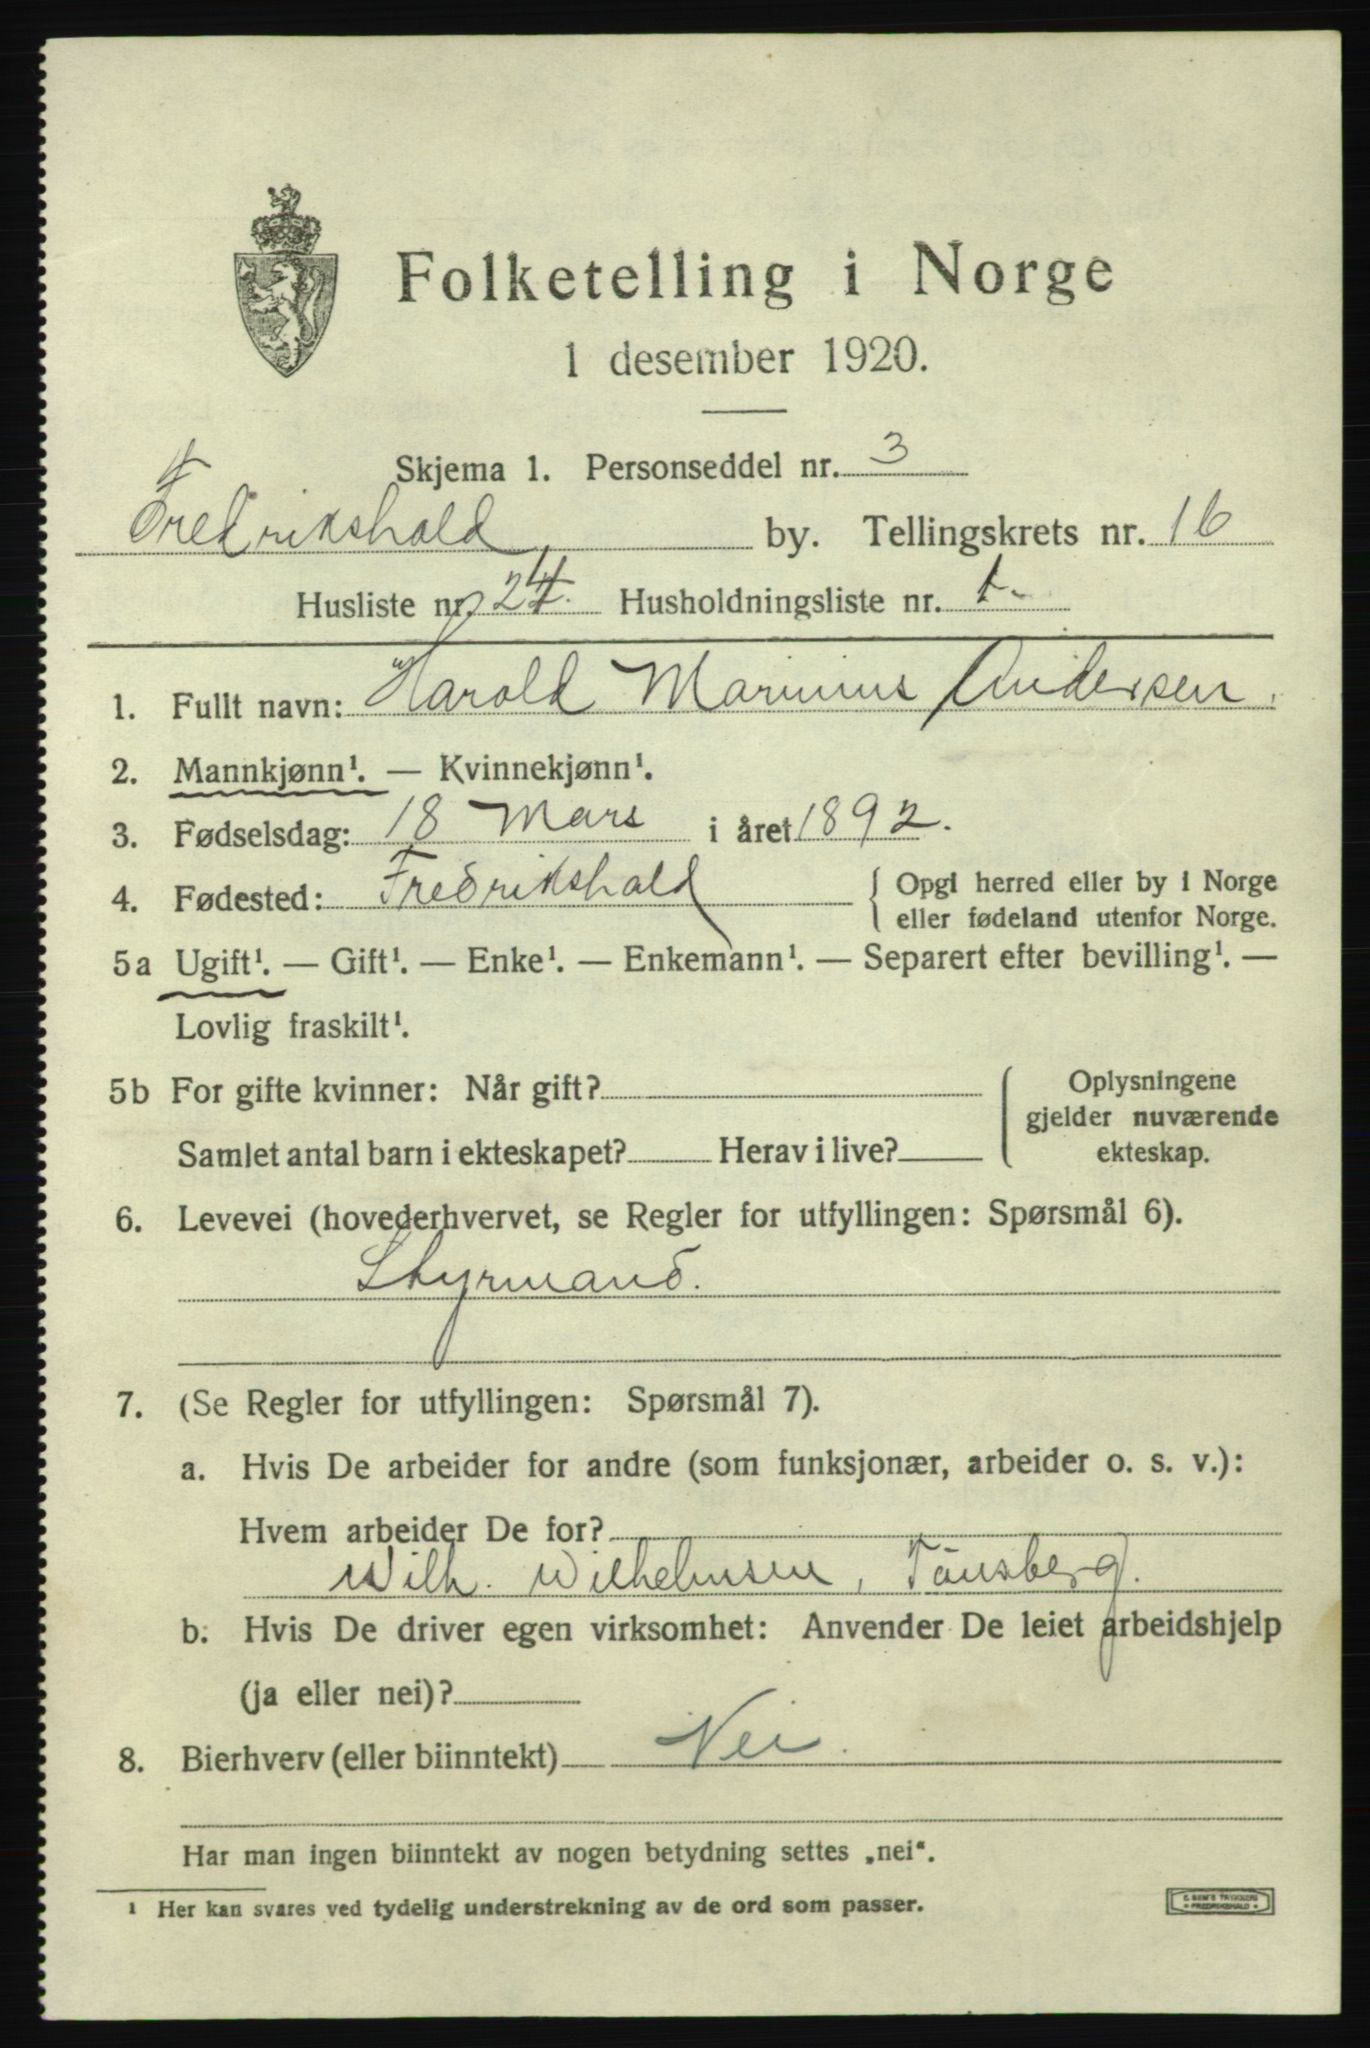 Folketelling i Norge
1 desember 1920.
Skjema 1. Personseddel nr. 3
Fredrikshald by. Tellingskrets nr. 16
Husliste nr. 24. Husholdningsliste nr. 1.
1. Fullt navn: Harold Marinius Andersen.
2. Mannkjønn¹. — Kvinnekjønn¹.
3. Fødselsdag: 18 Mars i året 1892.
4. Fødested: Fredrikshald { Opgi herred eller by i Norge
eller fødeland utenfor Norge.
5a Ugift¹. — Gift¹. — Enke¹. — Enkemann¹. — Separert efter bevilling¹. —
Lovlig fraskilt¹.
5b For gifte kvinner: Når gift? { Oplysningene
gjelder nuværende
Samlet antal barn i ekteskapet? Herav i live? ekteskap.
6. Levevei (hovederhvervet, se Regler for utfyllingen: Spørsmål 6).
Styrmand.
7. (Se Regler for utfyllingen: Spørsmål 7).
a. Hvis De arbeider for andre (som funksjonær, arbeider o. s. v.):
Hvem arbeider De for?
Wilh. Wilhelmsen, Tönsberg.
b. Hvis De driver egen virksomhet: Anvender De leiet arbeidshjelp
(ja eller nei)?
8. Bierhverv (eller biinntekt) Nei.
Har man ingen biinntekt av nogen betydning settes „nei“.
¹ Her kan svares ved tydelig understrekning av de ord som passer.